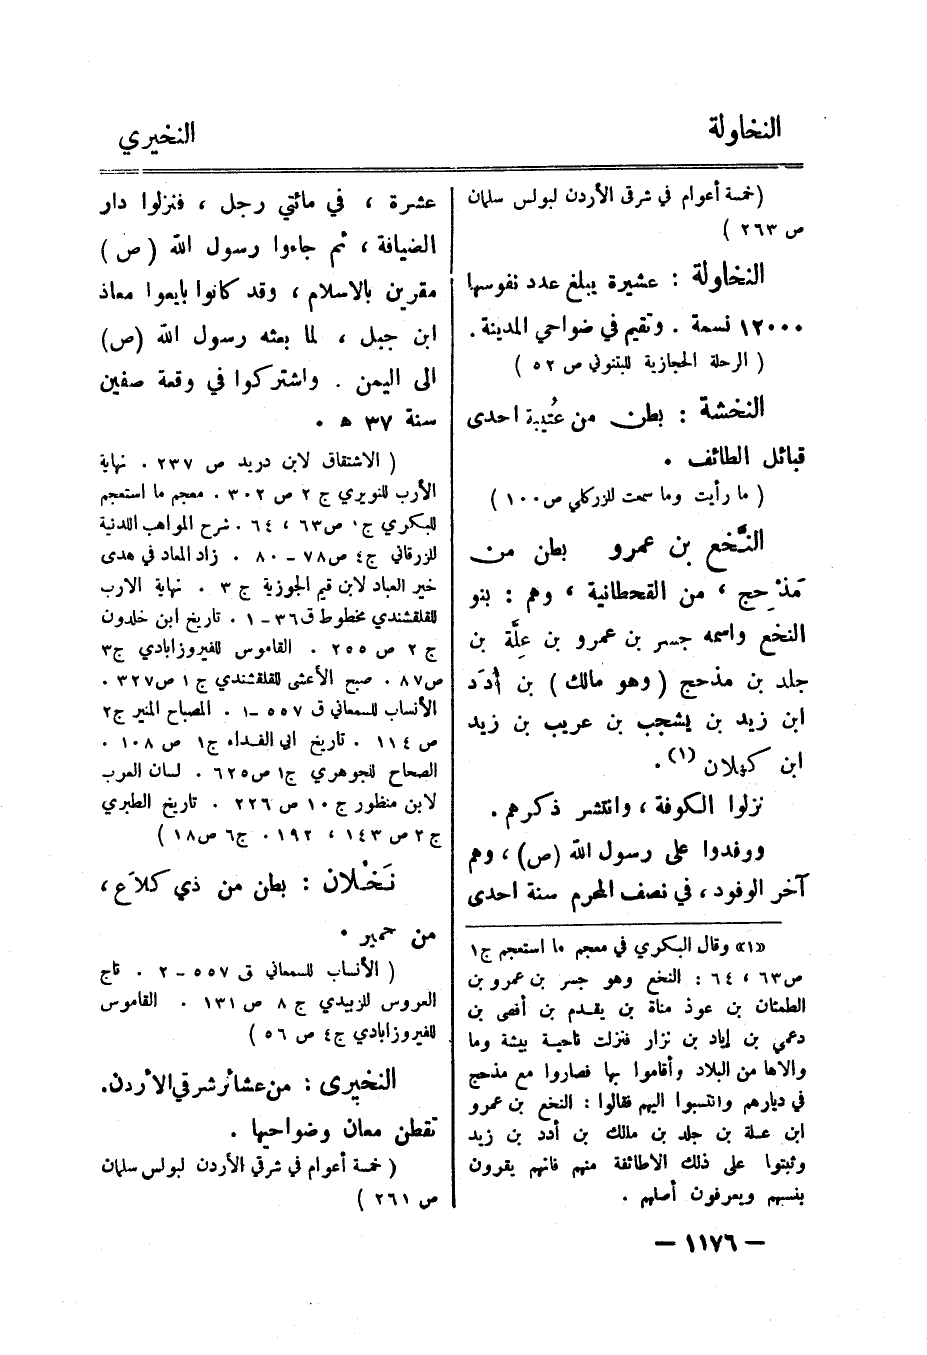 النخاولة
النخيري
(خمسة أعوام في شرقي الأردن لبولس سلمان
ص ٢٦٣ )
النخاولة : عشيرة يبلغ عدد نفوسها
١٢٠٠٠ نسمة . وتقيم في ضواحي المدينة .
( الرحلة الحجازية للبتنوني ص ٥٢ )
النخشة : بطن من عُتيبة احدى
قبائل الطائف .
( ما رأيت وما سمعت للزركلي ص ١٠٠ )
النَّخع بن عمرو بطن من
مَذْحِج ، من القحطانية ، وهم : بنو
النخع واسمه جسر بن عمرو بن عِلَّة بن
جلد بن مذحج ( وهو مالك ) بن أُدَد
ابن زيد بن يشجب بن عريب بن زيد
ابن كهلان (١) .
نزلوا الكوفة ، وانتشر ذكرهم .
ووفدوا على رسول الله (ص) ، وهم
آخر الوفود ، في نصف المحرم سنة احدى
«١» وقال البكري في معجم ما استعجم ج١
ص٦٣ ، ٦٤ : النخع وهو جسر بن عمرو بن
الطمثان بن عوذ مناة بن يقدم بن أفصى بن
دعمي بن إياد بن نزار فنزلت ناحية بيشة وما
والاها من البلاد وأقاموا بها فصاروا مع مذحج
في ديارهم وانتسبوا اليهم فقالوا : النخع بن عمرو
ابن عـلة بن جلد بن مالك بن أدد بن زيد
وثبتوا على ذلك الاطائفة منهم فانهم يقرون
بنسبهم ويعرفون أصلهم .
عشرة ، في مائتي رجل ، فنزلوا دار
الضيافة ، ثم جاءوا رسول الله (ص)
مقرين بالاسلام ، وقد كانوا بايعوا معاذ
ابن جبل ، لما بعثه رسول الله (ص)
الى اليمن . واشتركوا في وقعة صفين
سنة ٣٧ ه .
( الاشتقاق لابن دريد ص ٢٣٧ . نهاية
الأرب للنويري ج ٢ ص ٣٠٢ . معجم ما استعجم
للبكري ج١ ص٦٣ ، ٦٤ . شرح المواهب اللدنية
للزرقاني ج٤ ص٧٨ – ٨٠ . زاد المعاد في هدى
خير العباد لابن قيم الجوزية ج ٣ . نهاية الارب
للقلقشندي مخطوط ق٣٦–١ . تاريخ ابن خلدون
ج ٢ ص ٢٥٥ . القاموس للفيروزابادي ج٣
ص٨٧ . صبح الأعشى للقلقشندي ج ١ ص٣٢٧ .
الأنساب للسمعاني ق ٥٥٧ –١ . المصباح المنير ج٢
ص ١١٤ . تاريخ ابي الفداء ج١ ص ١٠٨ .
الصحاح للجوهري ج١ ص٦٢٥ . لسان العرب
لابن منظور ج ١٠ ص ٢٢٦ . تاريخ الطبري
ج ٢ ص ١٤٣ ، ١٩٢ . ج٦ ص١٨ )
نَخْلان : بطن من ذي كلاَع ،
من حمير .
( الأنساب للسمعاني ق ٥٥٧ – ٢ . تاج
العروس للزبيدي ج ٨ ص ١٣١ . القاموس
للفيروزابادي ج٤ ص ٥٦ )
النخيرى : من عشائر شرقي الأردن .
تقطن معان وضواحيها .
( خمسة أعوام في شرقي الأردن لبولس سلمان
ص ٢٦١ )
– ١١٧٦ –